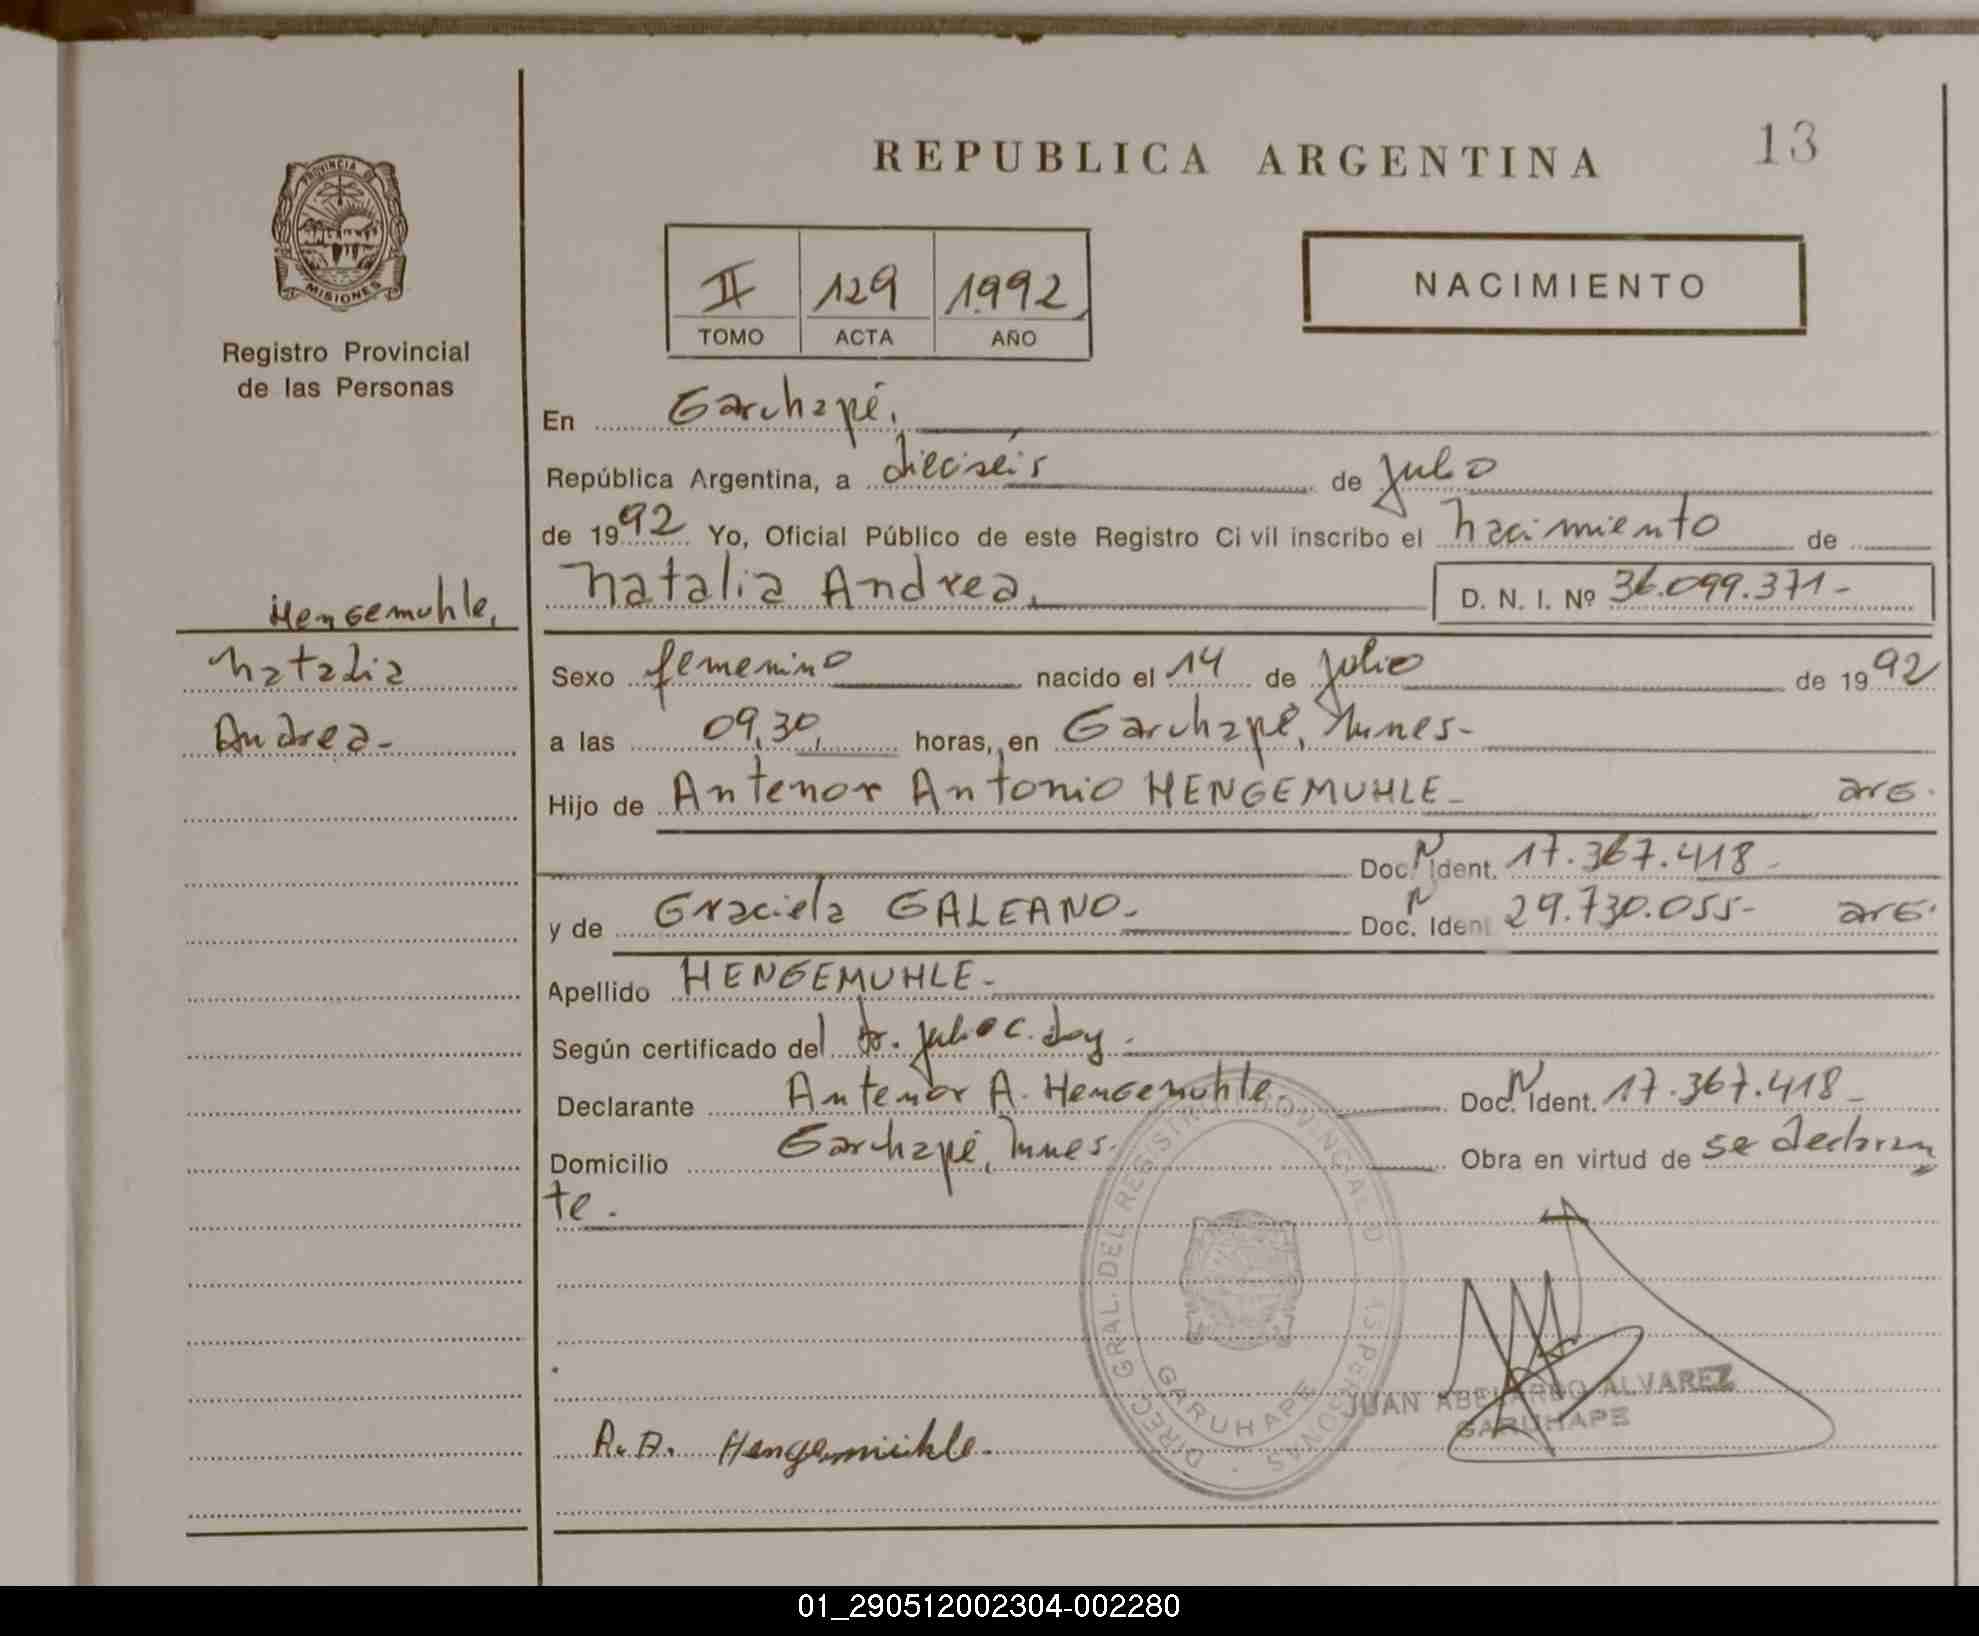 REPUBLICA ARGENTINA
13
PROVINCIA DE
MISIONES
Registro Provincial
de las Personas
II 129 1992
TOMO ACTA AÑO
NACIMIENTO
En Garuhapé,
República Argentina, a dieciséis de Julio
de 1992 Yo, Oficial Público de este Registro Civil inscribo el nacimiento de
Natalia Andrea, D. N. I. Nº 36.099.371-
Hengemuhle,
Natalia
Andrea-
Sexo femenino nacido el 14 de Julio de 1992
a las 09,30, horas, en Garuhapé, Mnes-
Hijo de Antenor Antonio HENGEMUHLE- arg.
Doc. N Ident. 17.367.418-
y de Graciela GALEANO- Doc. N Ident 29.730.055- arg.
Apellido HENGEMUHLE-
Según certificado del Dr. Julio C.
Declarante Antenor A. Hengemuhle Doc. N Ident. 17.367.418-
Domicilio Garuhapé, Mnes. Obra en virtud de se declaran
te.
DIREC. GRAL. DEL REGISTRO PROVINCIAL D LAS PERSONAS
GARUHAPE
JUAN ABELARDO ALVAREZ
GARUHAPE
A. A. Hengemühle.
01_290512002304-002280